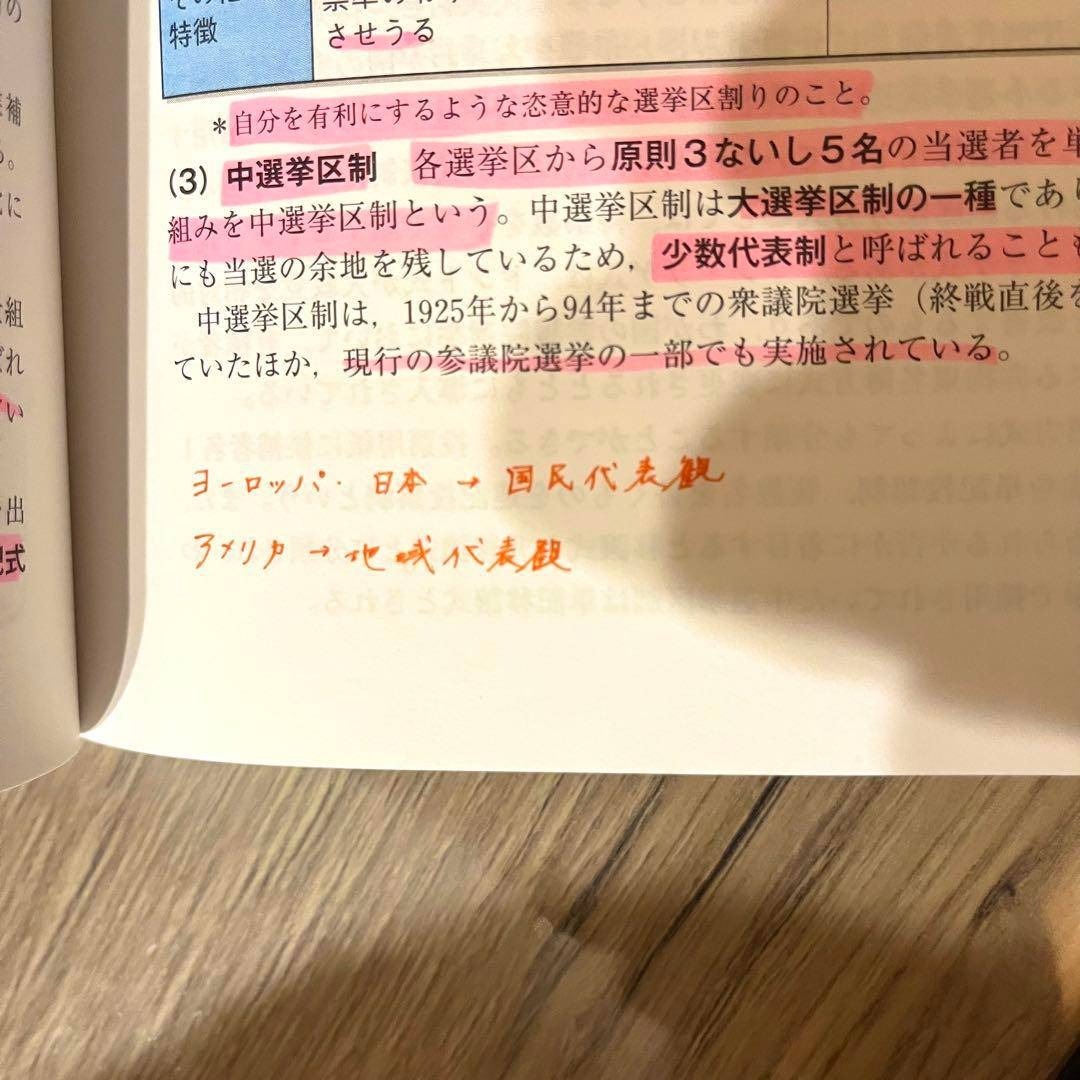 の
補
。
に
組
ばれ
い
出
記式
特徴
させうる
＊自分を有利にするような恣意的な選挙区割りのこと。
(3) 中選挙区制　各選挙区から原則３ないし５名の当選者を単
組みを中選挙区制という。中選挙区制は大選挙区制の一種であり
にも当選の余地を残しているため，少数代表制と呼ばれることも
中選挙区制は，1925年から94年までの衆議院選挙（終戦直後を
ていたほか，現行の参議院選挙の一部でも実施されている。
ヨーロッパ・日本 → 国民代表観
アメリカ → 地域代表観